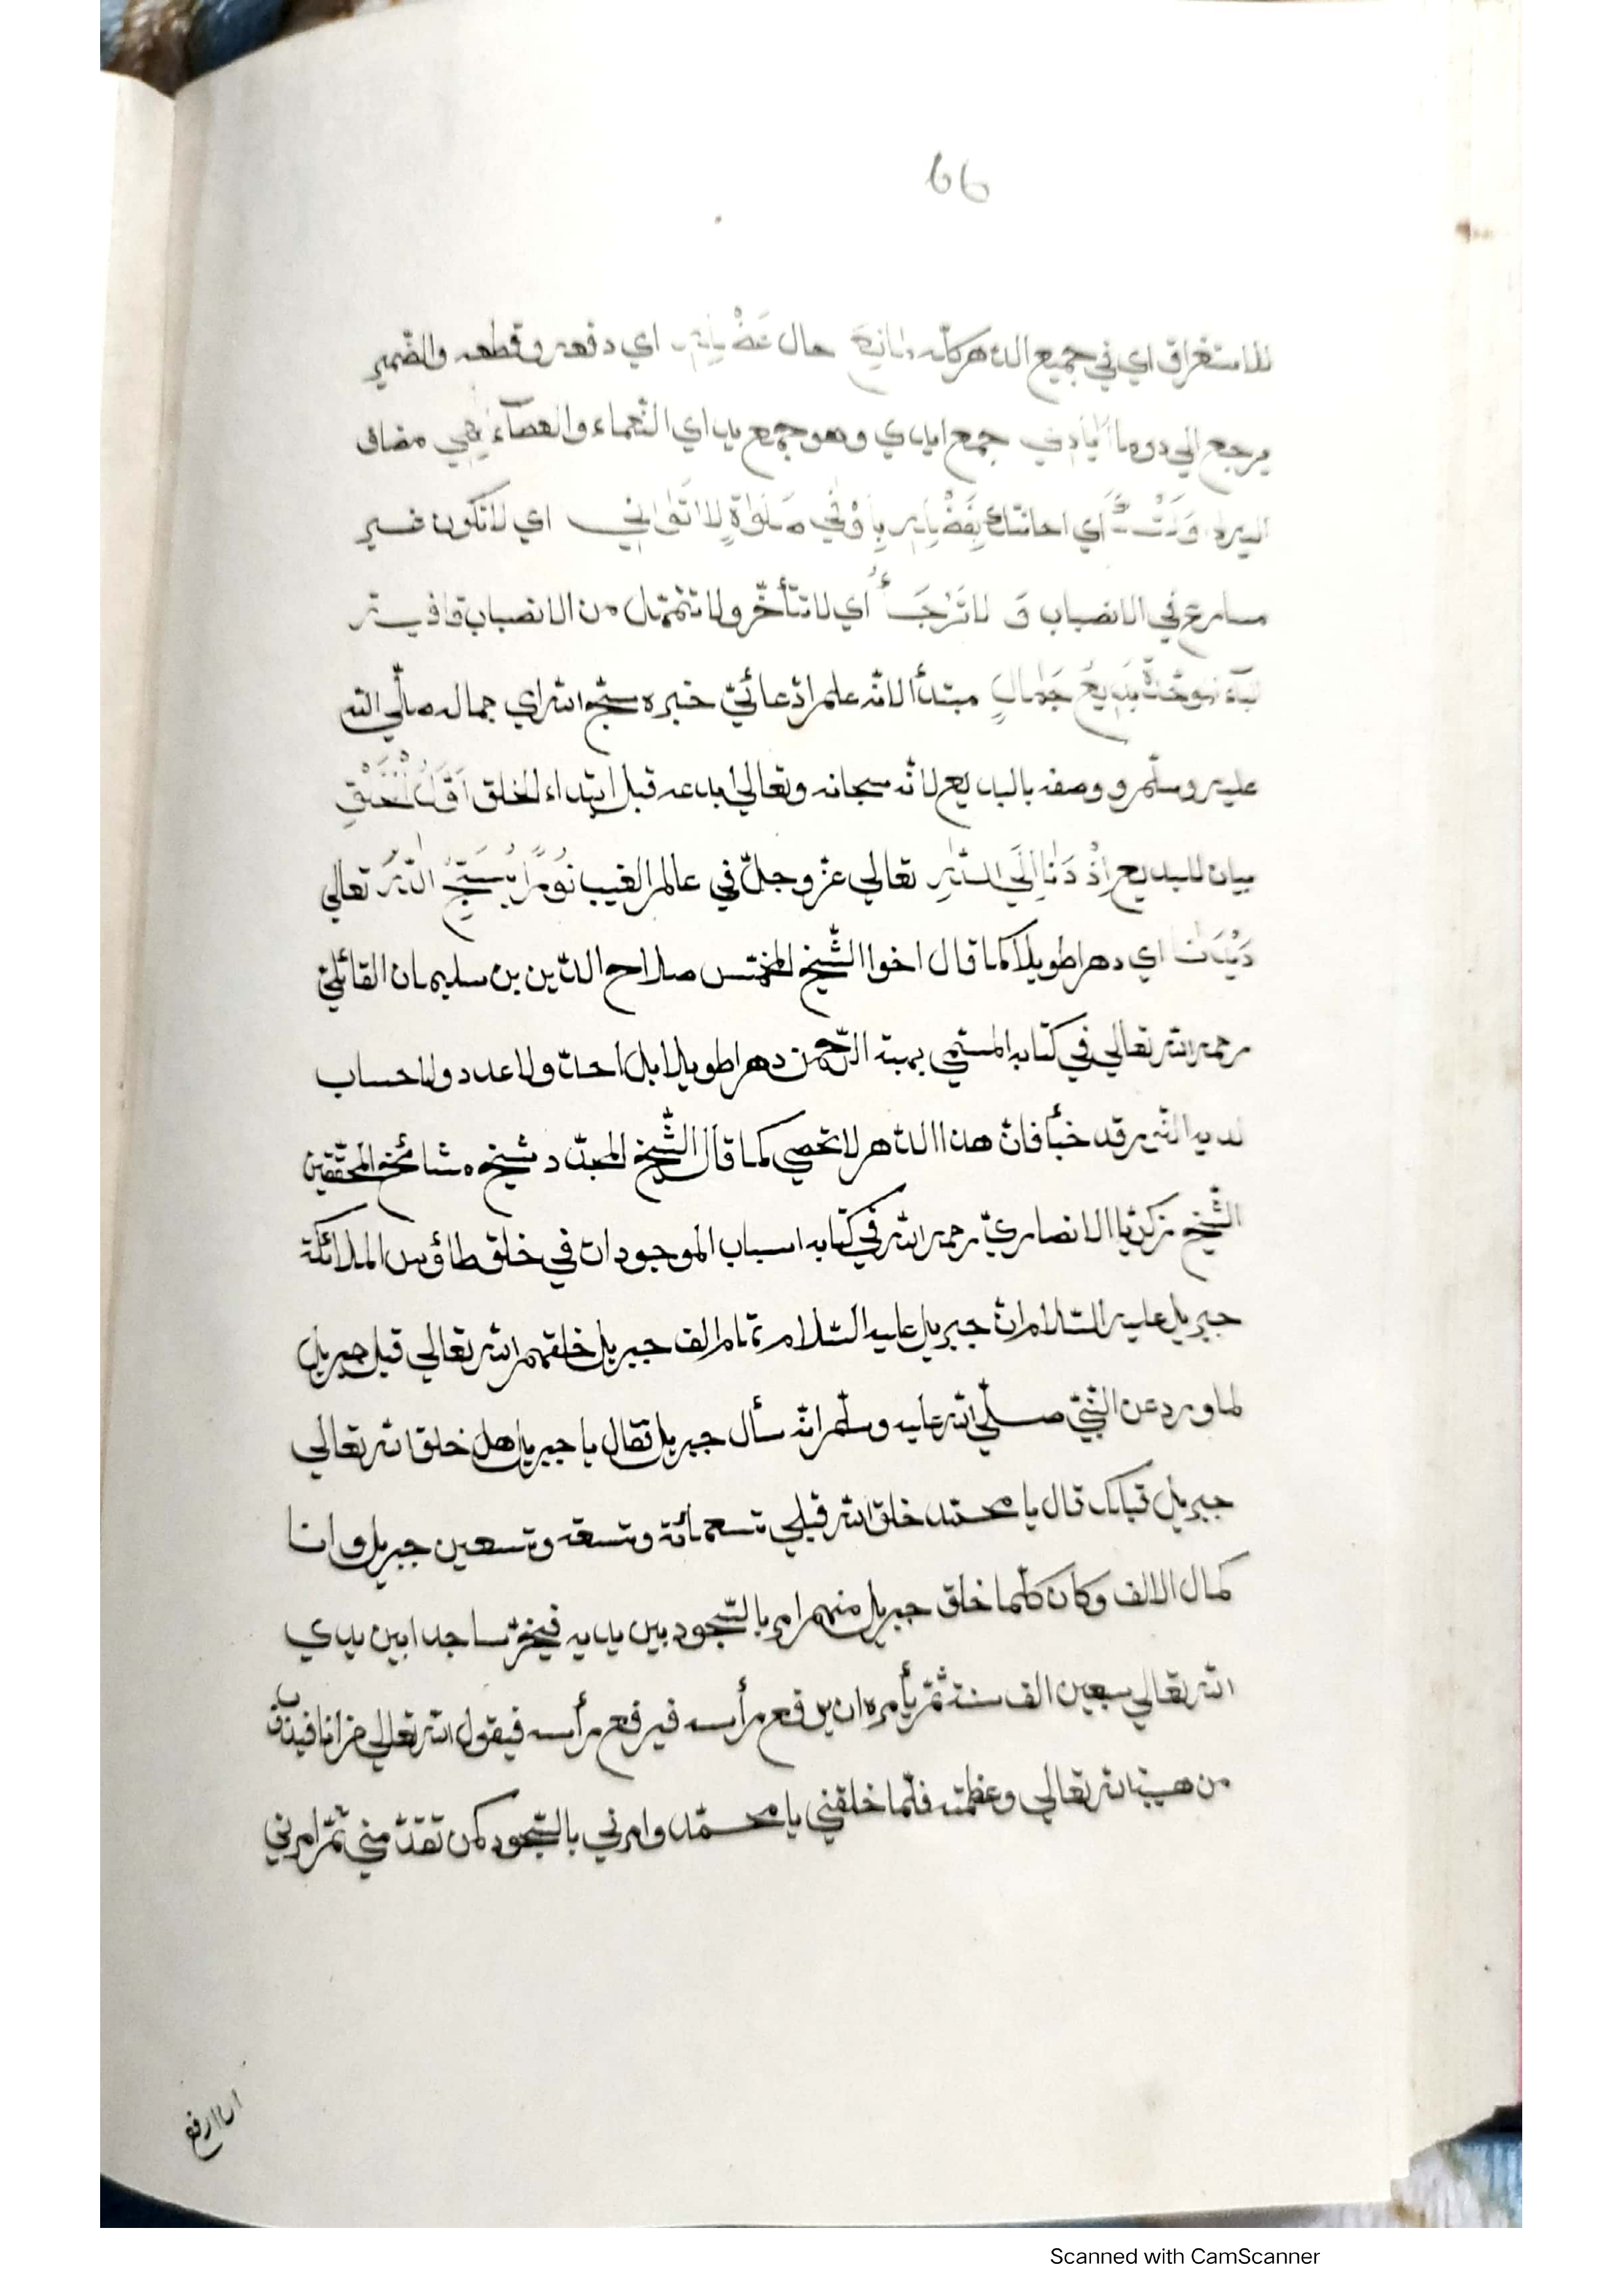 66
للاستغراق اي في جميع الدّهر كلّه حال اي دفعه وقطعه والضّمير
يرجع الي دوما جمع ايادي وهو جمع يد اي النّعماء والعصآء فهي مضاف
اي احانتك صَلَوٰةٍ لا اي لا تكون غير
مسارع في الانصباب وَ لا اي لا تتأخّر ولا تتمثل من الانصباب
بَدِيعُ جَمَالٍ مبتدأ لانّه علم ادّعائيّ خبره سبّح الله اي جماله صلّي الله
عليه وسلّم ووصفه بالبديع لانّه سبحانه وتعالي ابدعه قبل ابتداء الخلق اَوَّلَ الْخَلْقِ
بيان للبديع اِذْ دَنَا اِلَي اللّٰهِ تعالي عزّ وجلّ في عالم الغيب نُورًا يُسَبِّحُ اللّٰهَ تعالي
اي دهرا طويلا كما قال اخوا الشّيخ صلاح الدّين بن سليمان القائليّ
رحمه الله تعالي في كتابه المسمّي بهبة الرّحمٰن دهرا طويلا بلا حدّ ولا عدد ولا حساب
لديه الّذي قد خبأ فانّ هذا الدّهر لا تحصي كما قال الشّيخ المجدّد شيخ مشائخ المحقّقين
الشّيخ زكريّا الانصاريّ رحمه الله في كتابه اسباب الموجودات في خلق طاؤس الملائكة
جبريل عليه السّلام انّ جبريل عليه السّلام تمام الف جبريل خلقهم الله تعالي قبل جبريل
لما ورد عن النّبيّ صلّي الله عليه وسلّم انّه سأل جبريل فقال يا جبريل هل خلق الله تعالي
جبريل قبلك قال يا محمّد خلق الله قبلي تسعمائة وتسعة وتسعين جبريل وانا
كمال الالف وكان كلّما خلق جبريل منهم امر بالسّجود بين يديه فيخرّ ساجدا بين يدي
الله تعالي سبعين الف سنة ثمّ يأمره ان يرفع رأسه فيرفع رأسه فيقول الله تعالي من انا فيذوب
من هيبة الله تعالي وعظمته فلمّا خلقني يا محمّد وامرني بالسّجود كمن تقدّمني ثمّ امرني
ان ارفع